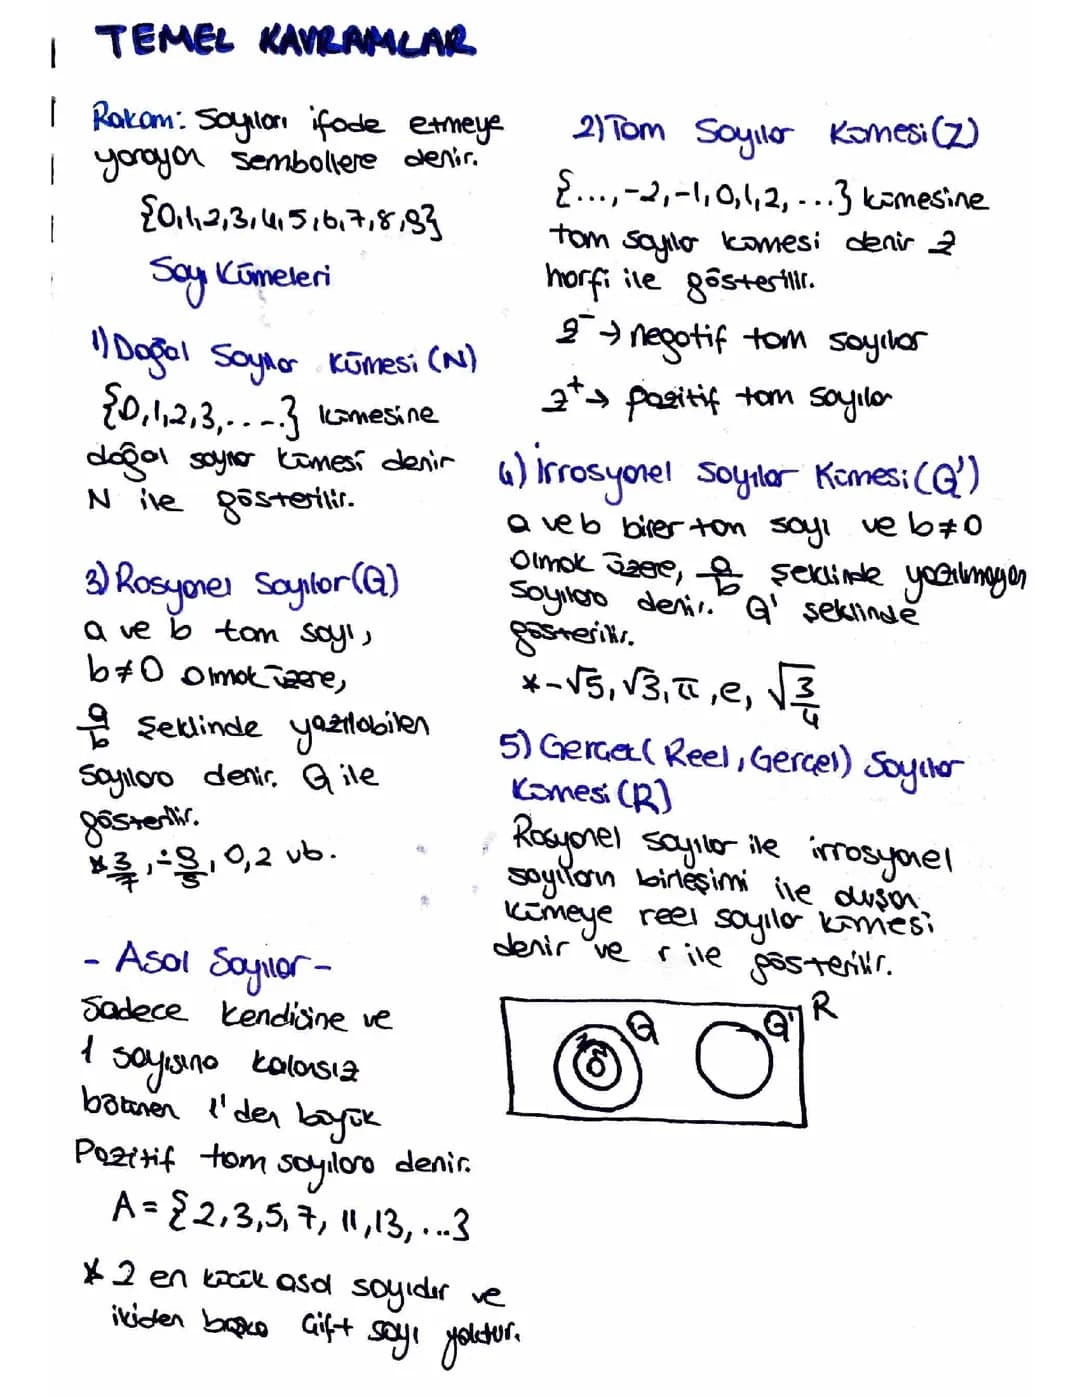 TEMEL KAVRAMLAR
Rakam: Sayıları ifade etmeye
yarayan sembollere denir.
{0,1,2,3,4,5,6,7,8,9}
Sayı Kümeleri
1) Doğal Sayılar Kümesi (N)
{0,1,2,3,....} kümesine
doğal sayılar kümesi denir
N ile gösterilir.
2) Tam Sayılar Kümesi (Z)
{...,-2,-1,0,1,2,...} kümesine
tam sayılar kümesi denir Z
harfi ile gösterilir.
Z⁻ → negatif tam sayılar
Z⁺ → pozitif tam sayılar
3) Rasyonel Sayılar (Q)
a ve b tam sayı,
b≠0 olmak üzere,
a/b şeklinde yazılabilen
sayılara denir. Q ile
gösterilir.
* 3/7, -9/5, 0,2 vb.
4) İrrasyonel Sayılar Kümesi (Q')
a ve b birer tam sayı ve b≠0
olmak üzere, a/b şeklinde yazılmayan
sayılara denir. Q' şeklinde
gösterilir.
* -√5, √3, π, e, √3/4
5) Gerçek (Reel, Gerçel) Sayılar
Kümesi (R)
Rasyonel sayılar ile irrasyonel
sayıların birleşimi ile oluşan
kümeye reel sayılar kümesi
denir ve r ile gösterilir.
R
Q
Q'
Z
N
- Asal Sayılar -
Sadece kendisine ve
1 sayısına kalansız
bölünen 1'den büyük
Pozitif tam sayılara denir.
A = {2,3,5,7,11,13,...}
* 2 en küçük asal sayıdır ve
ikiden başka çift sayı yoktur.